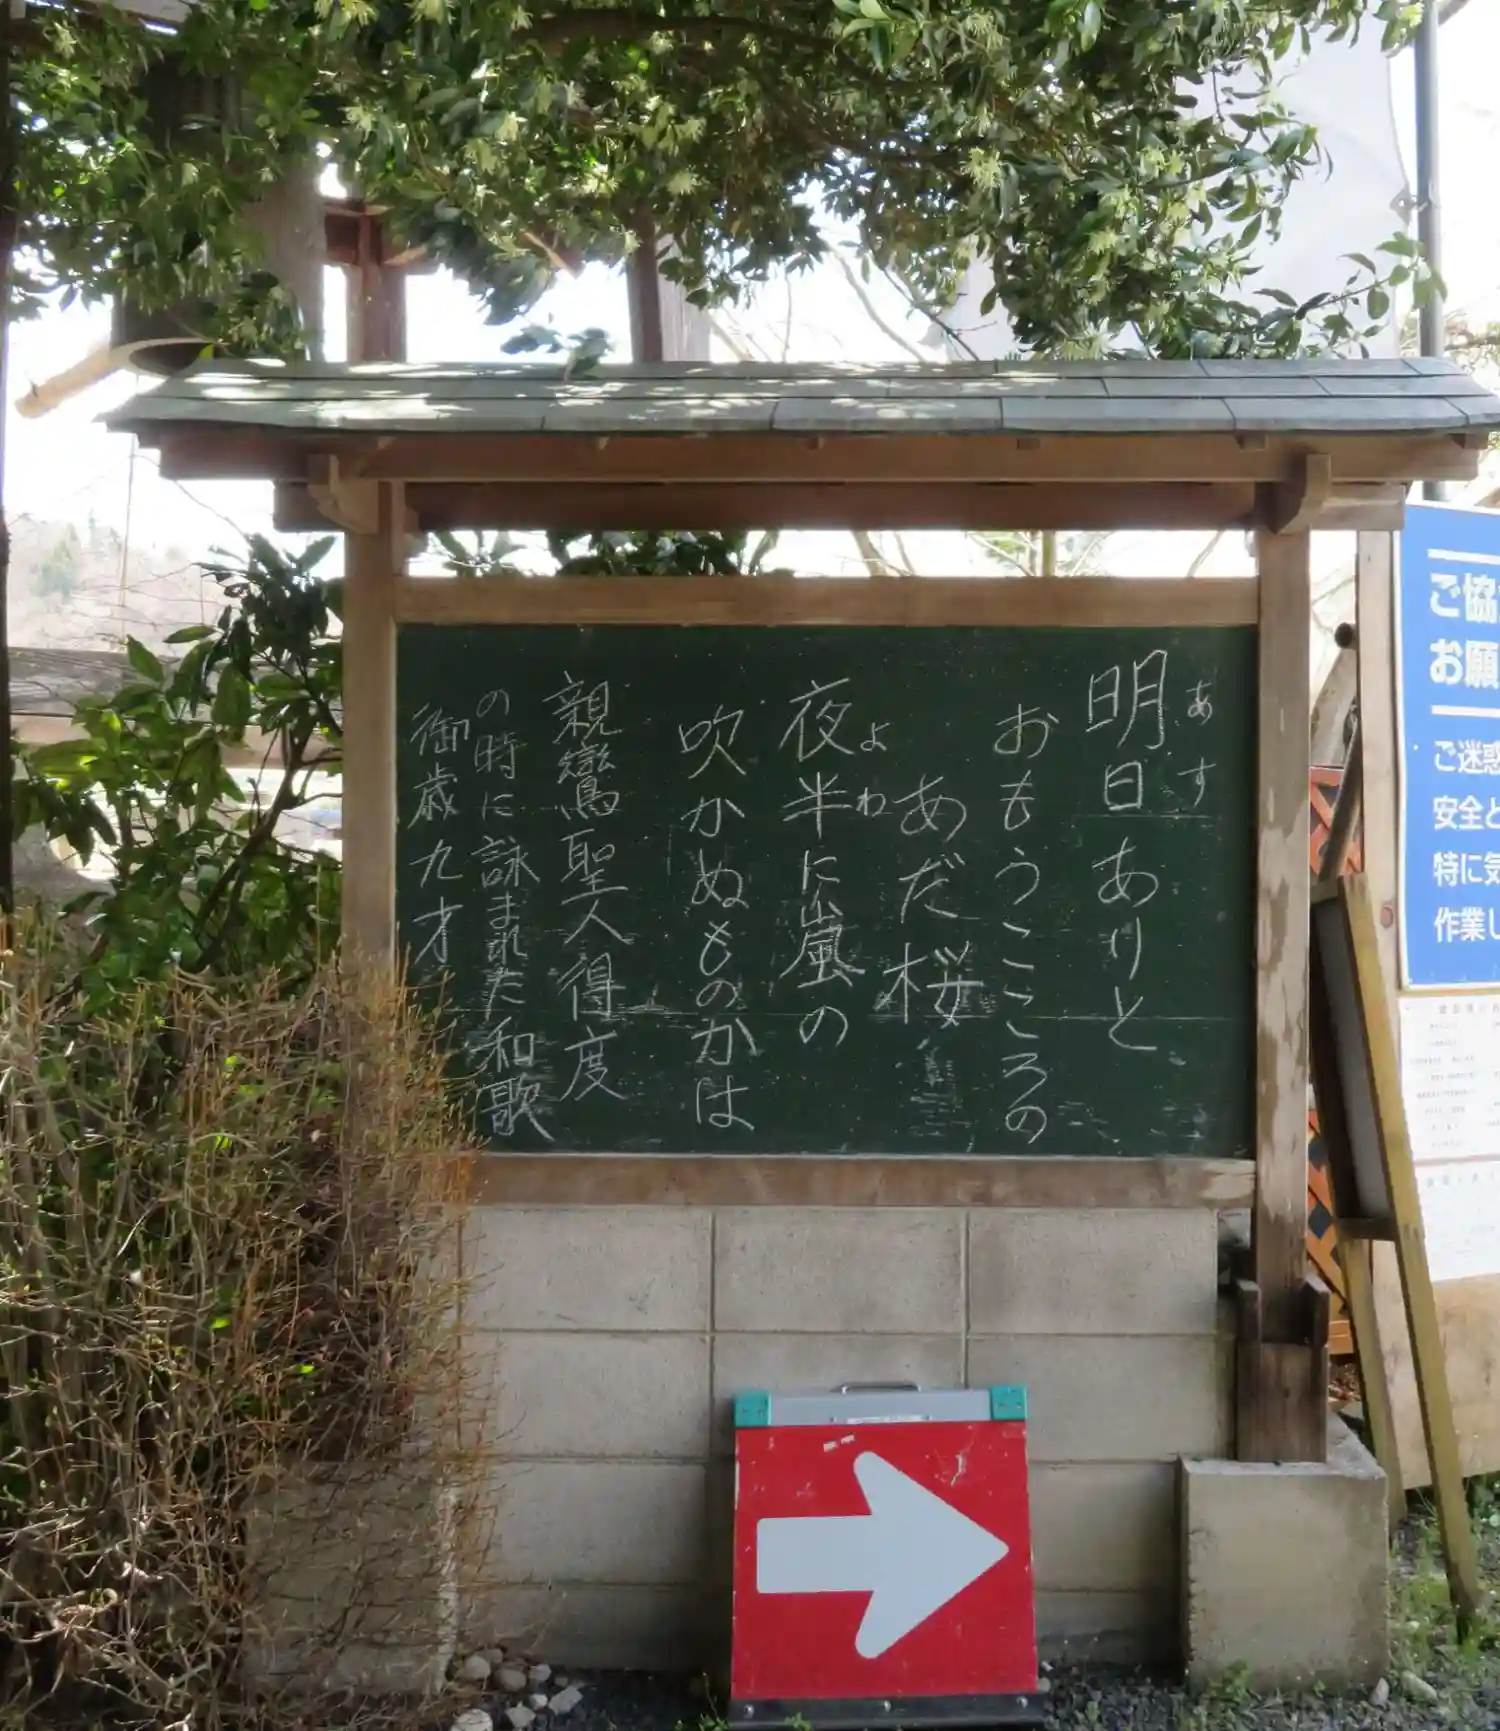 明日ありと
あす
おもうこころの
あだ桜
夜半に嵐の
よわ
吹かぬものかは
親鸞聖人得度
の時に詠まれた和歌
御歳九才
ご協
お願
ご迷惑
安全と
特に気
作業し